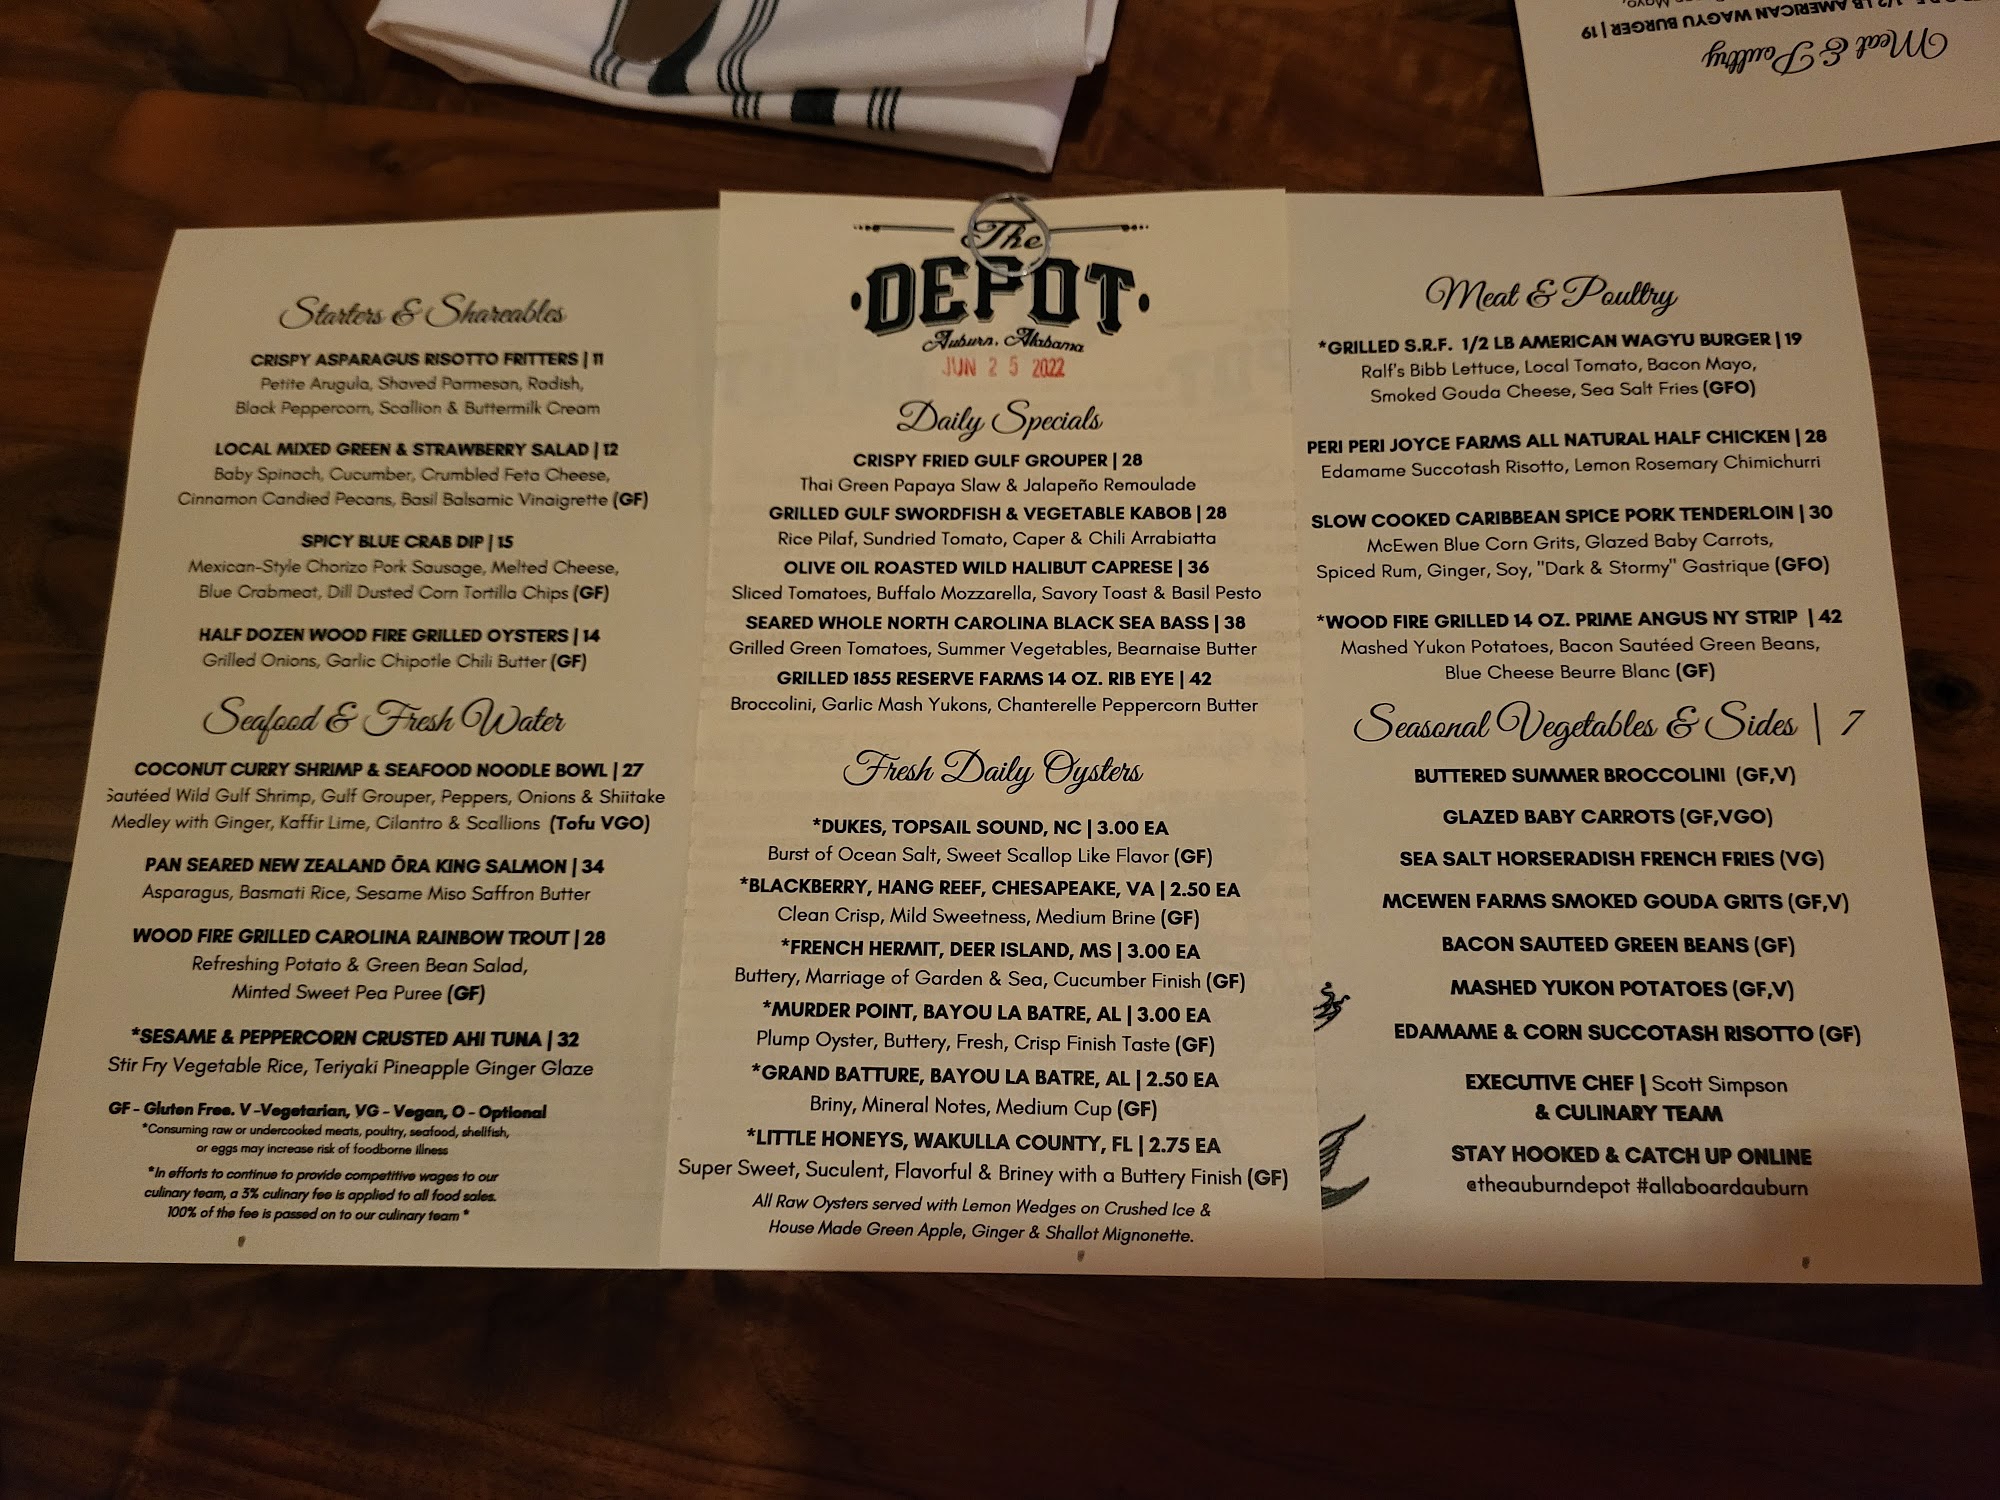 Starters & Shareables
CRISPY ASPARAGUS RISOTTO FRITTERS | 11
Petite Arugula, Shaved Parmesan, Radish,
Black Peppercorn, Scallion & Buttermilk Cream
LOCAL MIXED GREEN & STRAWBERRY SALAD | 12
Baby Spinach, Cucumber, Crumbled Feta Cheese,
Cinnamon Candied Pecans, Basil Balsamic Vinaigrette (GF)
SPICY BLUE CRAB DIP | 15
Mexican-Style Chorizo Pork Sausage, Melted Cheese,
Blue Crabmeat, Dill Dusted Corn Tortilla Chips (GF)
HALF DOZEN WOOD FIRE GRILLED OYSTERS | 14
Grilled Onions, Garlic Chipotle Chili Butter (GF)
Seafood & Fresh Water
COCONUT CURRY SHRIMP & SEAFOOD NOODLE BOWL | 27
Sautéed Wild Gulf Shrimp, Gulf Grouper, Peppers, Onions & Shiitake
Medley with Ginger, Kaffir Lime, Cilantro & Scallions (Tofu VGO)
PAN SEARED NEW ZEALAND ŌRA KING SALMON | 34
Asparagus, Basmati Rice, Sesame Miso Saffron Butter
WOOD FIRE GRILLED CAROLINA RAINBOW TROUT | 28
Refreshing Potato & Green Bean Salad,
Minted Sweet Pea Puree (GF)
*SESAME & PEPPERCORN CRUSTED AHI TUNA | 32
Stir Fry Vegetable Rice, Teriyaki Pineapple Ginger Glaze
GF - Gluten Free. V -Vegetarian, VG - Vegan, O - Optional
*Consuming raw or undercooked meats, poultry, seafood, shellfish,
or eggs may increase risk of foodborne illness
*In efforts to continue to provide competitive wages to our
culinary team, a 3% culinary fee is applied to all food sales.
100% of the fee is passed on to our culinary team *
The
DEPOT
Auburn, Alabama
JUN 25 2022
Daily Specials
CRISPY FRIED GULF GROUPER | 28
Thai Green Papaya Slaw & Jalapeño Remoulade
GRILLED GULF SWORDFISH & VEGETABLE KABOB | 28
Rice Pilaf, Sundried Tomato, Caper & Chili Arrabiatta
OLIVE OIL ROASTED WILD HALIBUT CAPRESE | 36
Sliced Tomatoes, Buffalo Mozzarella, Savory Toast & Basil Pesto
SEARED WHOLE NORTH CAROLINA BLACK SEA BASS | 38
Grilled Green Tomatoes, Summer Vegetables, Bearnaise Butter
GRILLED 1855 RESERVE FARMS 14 OZ. RIB EYE | 42
Broccolini, Garlic Mash Yukons, Chanterelle Peppercorn Butter
Fresh Daily Oysters
*DUKES, TOPSAIL SOUND, NC | 3.00 EA
Burst of Ocean Salt, Sweet Scallop Like Flavor (GF)
*BLACKBERRY, HANG REEF, CHESAPEAKE, VA | 2.50 EA
Clean Crisp, Mild Sweetness, Medium Brine (GF)
*FRENCH HERMIT, DEER ISLAND, MS | 3.00 EA
Buttery, Marriage of Garden & Sea, Cucumber Finish (GF)
*MURDER POINT, BAYOU LA BATRE, AL | 3.00 EA
Plump Oyster, Buttery, Fresh, Crisp Finish Taste (GF)
*GRAND BATTURE, BAYOU LA BATRE, AL | 2.50 EA
Briny, Mineral Notes, Medium Cup (GF)
*LITTLE HONEYS, WAKULLA COUNTY, FL | 2.75 EA
Super Sweet, Suculent, Flavorful & Briney with a Buttery Finish (GF)
All Raw Oysters served with Lemon Wedges on Crushed Ice &
House Made Green Apple, Ginger & Shallot Mignonette.
Meat & Poultry
*GRILLED S.R.F. 1/2 LB AMERICAN WAGYU BURGER | 19
Ralf's Bibb Lettuce, Local Tomato, Bacon Mayo,
Smoked Gouda Cheese, Sea Salt Fries (GFO)
PERI PERI JOYCE FARMS ALL NATURAL HALF CHICKEN | 28
Edamame Succotash Risotto, Lemon Rosemary Chimichurri
SLOW COOKED CARIBBEAN SPICE PORK TENDERLOIN | 30
McEwen Blue Corn Grits, Glazed Baby Carrots,
Spiced Rum, Ginger, Soy, "Dark & Stormy" Gastrique (GFO)
*WOOD FIRE GRILLED 14 OZ. PRIME ANGUS NY STRIP | 42
Mashed Yukon Potatoes, Bacon Sautéed Green Beans,
Blue Cheese Beurre Blanc (GF)
Seasonal Vegetables & Sides | 7
BUTTERED SUMMER BROCCOLINI (GF,V)
GLAZED BABY CARROTS (GF,VGO)
SEA SALT HORSERADISH FRENCH FRIES (VG)
MCEWEN FARMS SMOKED GOUDA GRITS (GF,V)
BACON SAUTEED GREEN BEANS (GF)
MASHED YUKON POTATOES (GF,V)
EDAMAME & CORN SUCCOTASH RISOTTO (GF)
EXECUTIVE CHEF | Scott Simpson
& CULINARY TEAM
STAY HOOKED & CATCH UP ONLINE
@theauburndepot #allaboardauburn
Meat & Poultry
1/2 LB AMERICAN WAGYU BURGER | 19
Mayo,